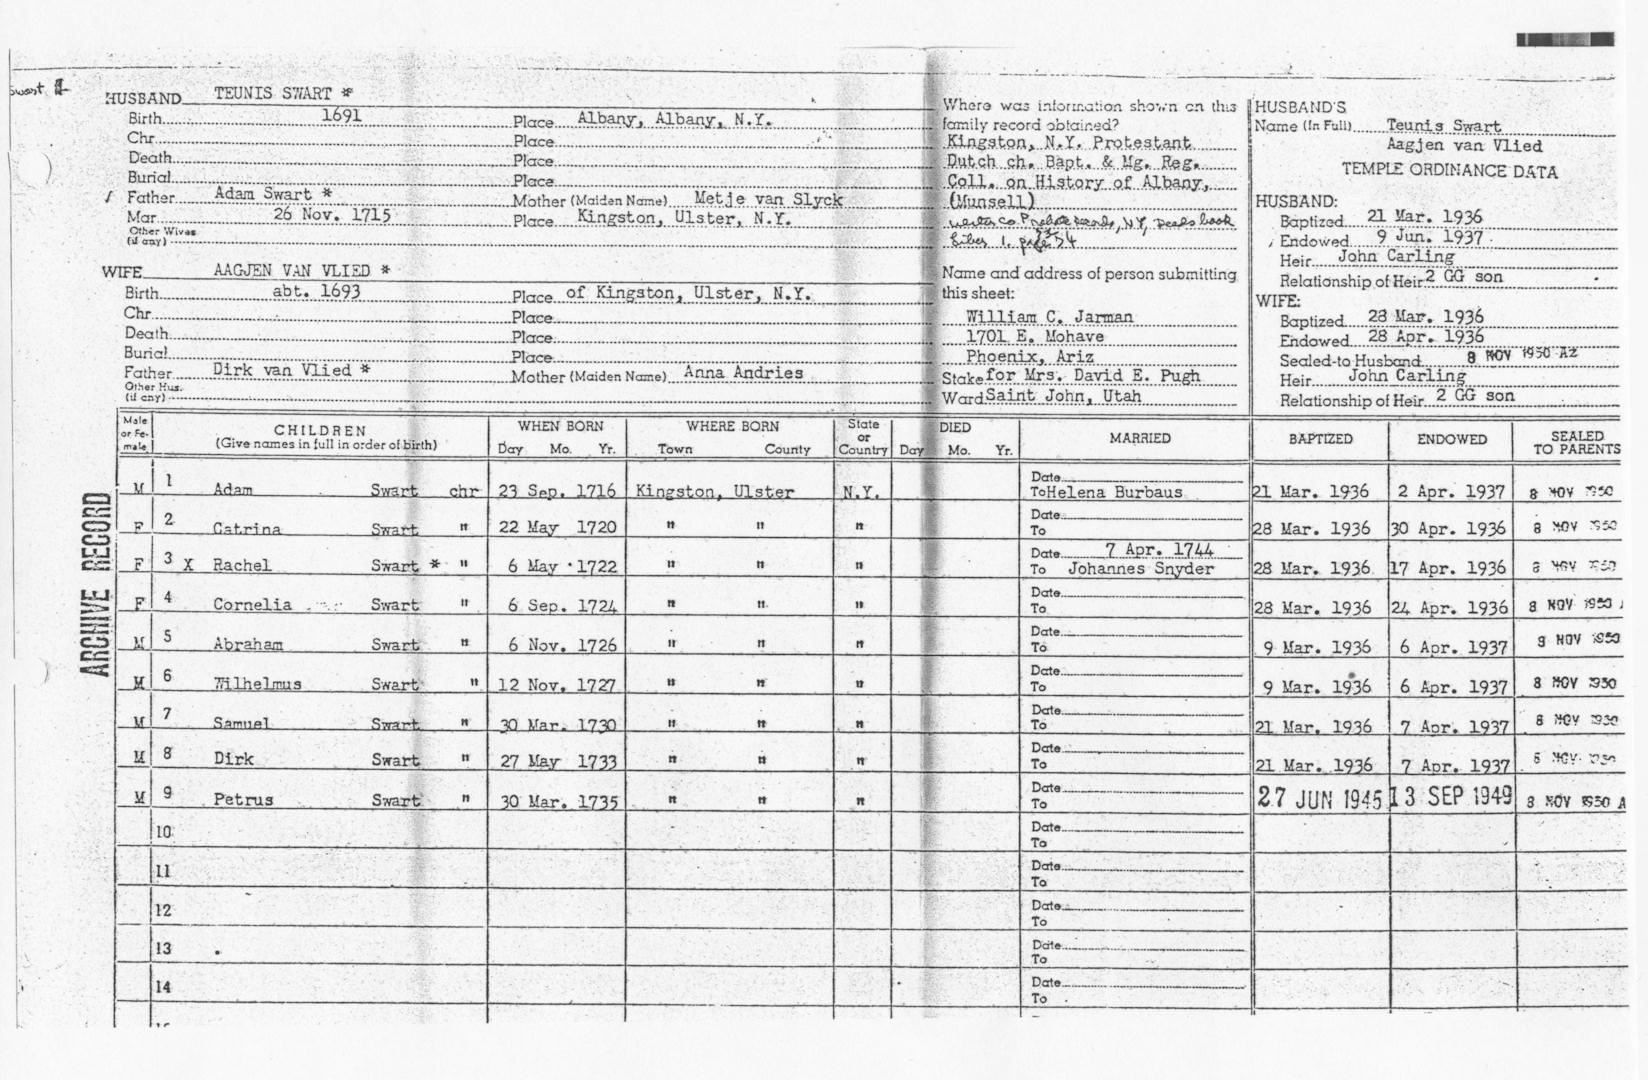 HUSBAND TEUNIS SWART *
Birth 1691 Place Albany, Albany, N.Y.
Chr. Place
Death Place
Burial Place
Father Adam Swart * Mother (Maiden Name) Metje van Slyck
Mar. 26 Nov. 1715 Place Kingston, Ulster, N.Y.
Other Wives
(if any)
WIFE AAGJEN VAN VLIED *
Birth abt. 1693 Place of Kingston, Ulster, N.Y.
Chr. Place
Death Place
Burial Place
Father Dirk van Vlied * Mother (Maiden Name) Anna Andries
Other Hus.
(if any)
Where was information shown on this
family record obtained?
Kingston, N.Y. Protestant
Dutch ch. Bapt. & Mg. Reg.
Coll. on History of Albany,
(Munsell)
Name and address of person submitting
this sheet:
William C. Jarman
1701 E. Mohave
Phoenix, Ariz
Stake for Mrs. David E. Pugh
Ward Saint John, Utah
HUSBAND'S
Name (In Full) Teunis Swart
Aagjen van Vlied
TEMPLE ORDINANCE DATA
HUSBAND:
Baptized 21 Mar. 1936
Endowed 9 Jun. 1937
Heir John Carling
Relationship of Heir 2 GG son
WIFE:
Baptized 28 Mar. 1936
Endowed 28 Apr. 1936
Sealed to Husband 8 NOV 1950 AZ
Heir John Carling
Relationship of Heir 2 GG son
ARCHIVE RECORD
Male or Female CHILDREN (Give names in full in order of birth) WHEN BORN Day Mo. Yr. WHERE BORN Town County State or Country DIED Day Mo. Yr. MARRIED BAPTIZED ENDOWED SEALED TO PARENTS
M 1 Adam Swart chr 23 Sep. 1716 Kingston, Ulster N.Y. Date To Helena Burbaus 21 Mar. 1936 2 Apr. 1937 8 NOV 1950
F 2 Catrina Swart " 22 May 1720 " " " Date To 28 Mar. 1936 30 Apr. 1936 8 NOV 1950
F 3 X Rachel Swart * " 6 May 1722 " " " Date 7 Apr. 1744 To Johannes Snyder 28 Mar. 1936 17 Apr. 1936 8 NOV 1950
F 4 Cornelia Swart " 6 Sep. 1724 " " " Date To 28 Mar. 1936 24 Apr. 1936 8 NOV 1950
M 5 Abraham Swart " 6 Nov. 1726 " " " Date To 9 Mar. 1936 6 Apr. 1937 8 NOV 1950
M 6 Wilhelmus Swart " 12 Nov. 1727 " " " Date To 9 Mar. 1936 6 Apr. 1937 8 NOV 1950
M 7 Samuel Swart " 30 Mar. 1730 " " " Date To 21 Mar. 1936 7 Apr. 1937 8 NOV 1950
M 8 Dirk Swart " 27 May 1733 " " " Date To 21 Mar. 1936 7 Apr. 1937 8 NOV 1950
M 9 Petrus Swart " 30 Mar. 1735 " " " Date To 27 JUN 1945 13 SEP 1949 8 NOV 1950 A
10 Date To
11 Date To
12 Date To
13 Date To
14 Date To